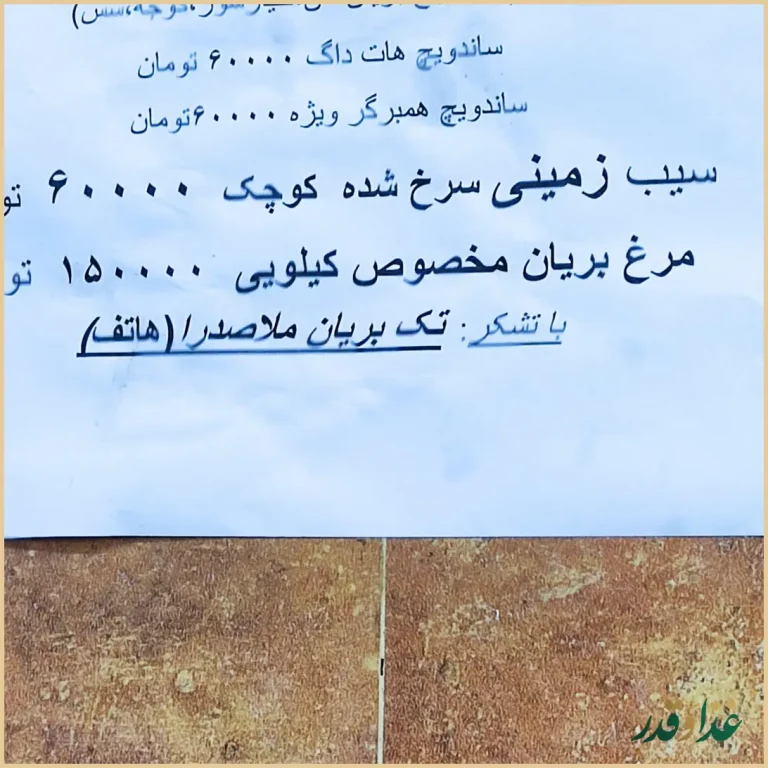 ساندویچ هات داگ ۶۰۰۰۰ تومان
ساندویچ همبرگر ویژه ۶۰۰۰۰تومان
سیب زمینی سرخ شده کوچک ۶۰۰۰۰ تو
مرغ بریان مخصوص کیلویی ۱۵۰۰۰۰ تو
با تشکر: تک بریان ملاصدرا (هاتف)
غذا قدر